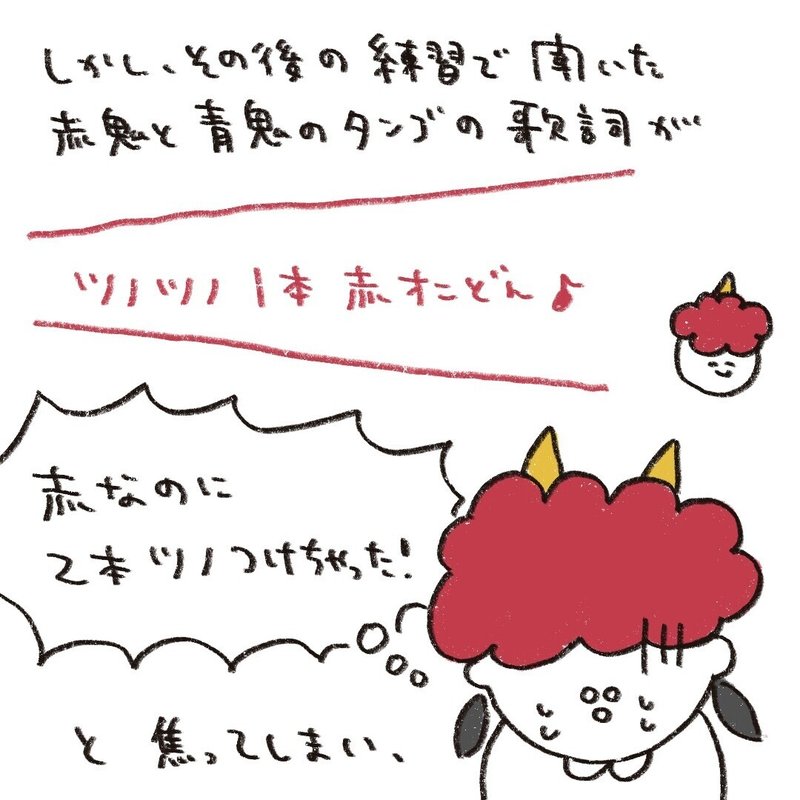 しかし、その後の練習で聞いた
赤鬼と青鬼のタンゴの歌詞が
ツノツノ1本赤オニどん♪
赤なのに
2本ツノつけちゃった!
と焦ってしまい、